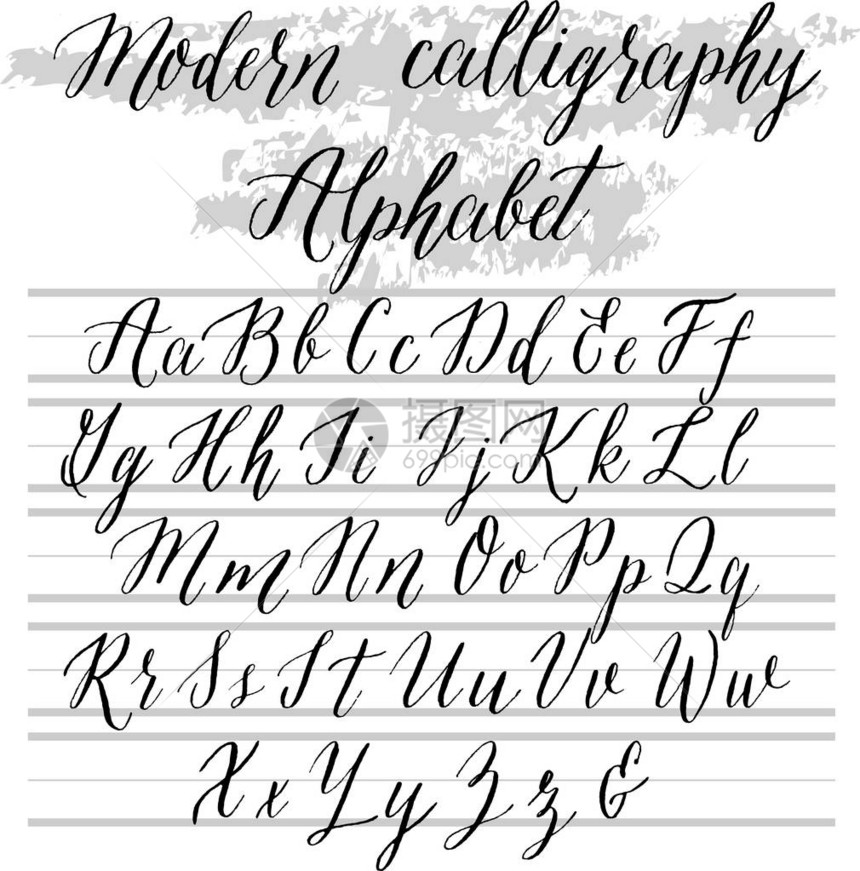 Modern calligraphy
Alphabet
Aa Bb Cc Dd Ee Ff
Gg Hh Ii Jj Kk Ll
摄图网
699pic.com
Mm Nn Oo Pp Qq
Rr Ss Tt Uu Vv Ww
Xx Yy Zz &